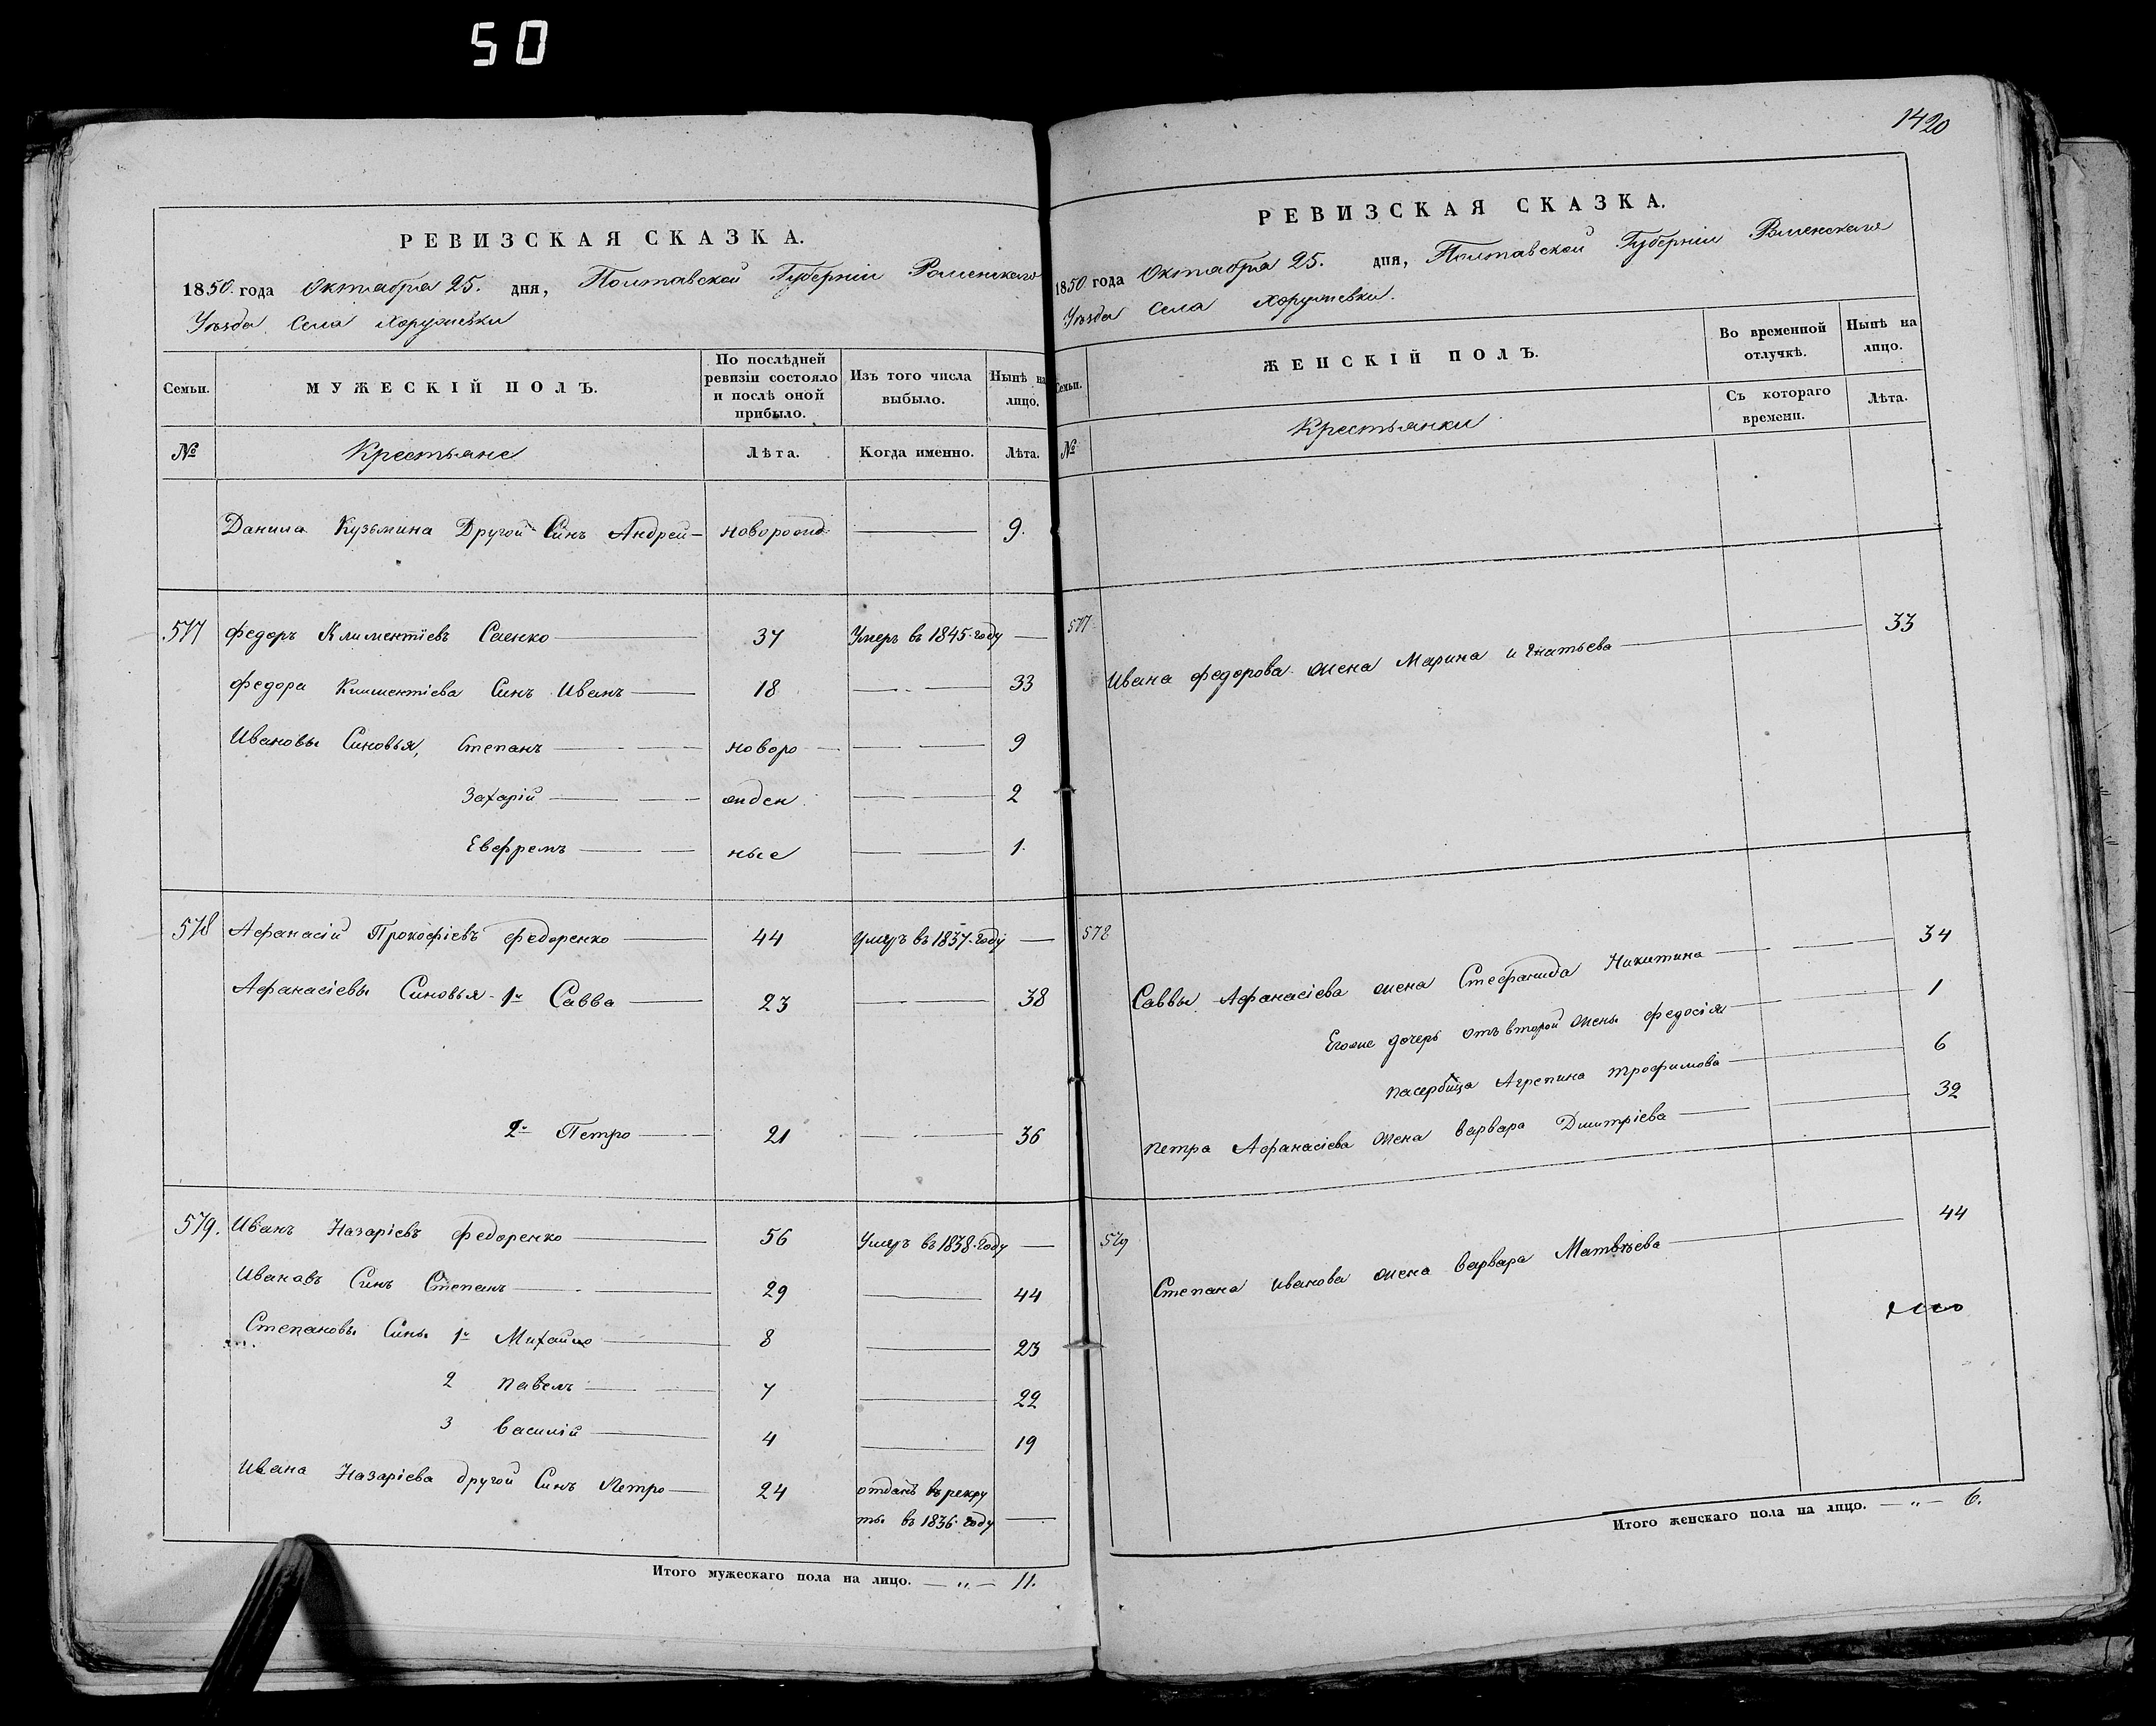 50
РЕВИЗСКАЯ СКАЗКА.
1850 года Октября 25. дня, Полтавской Губерніи Роменскаго
Уѣзда Села Хоружевки
Семьи.
МУЖЕСКІЙ ПОЛЪ.
По послѣдней ревизіи состояло и послѣ оной прибыло.
Изъ того числа выбыло.
Нынѣ на лицо.
№
Крестьяне
Лѣта.
Когда именно.
Лѣта.
Данила Кузьмина Другой Синъ Андрей — новорожд — 9.
577 Федоръ Климентіевъ Саенко — 37 Умеръ въ 1845 году —
Федора Климентіева Синъ Иванъ — 18 — 33
Ивановы Синовья, Степанъ — новоро — 9
Захарій — жден — 2
Евфремъ — ные — 1.
578 Афанасій Прокофіевъ Федоренко — 44 Умеръ въ 1837 году —
Афанасіевы Синовья 1й Савва — 23 — 38
2й Петро — 21 — 36
579. Иванъ Назаріевъ Федоренко — 56 Умеръ въ 1838 году —
Ивановъ Синъ Степанъ — 29 — 44
Степановы Сины 1й Михайло — 8 — 23
2 Павелъ — 7 — 22
3 Василій — 4 — 19
Ивана Назаріева другой Синъ Петро — 24 отданъ въ рекру
ты въ 1836 году —
Итого мужескаго пола на лицо. — „ — 11.
1420
РЕВИЗСКАЯ СКАЗКА.
1850 года Октября 25. дня, Полтавской Губерніи Роменскаго
Уѣзда Села Хоружевки.
Семьи.
ЖЕНСКІЙ ПОЛЪ.
Во временной отлучкѣ.
Нынѣ на лицо.
№
Крестьянки
Съ котораго времени.
Лѣта.
577 Ивана Федорова жена Марина Игнатьева — 33
578 Саввы Афанасіева жена Стефанида Никитина — 34
Егоже дочерь отъ второй жены Федосія — 1
пасербица Агрепина Трофимова — 6
Петра Афанасіева жена Варвара Дмитріева — 32
579 Степана Иванова жена Варвара Матвѣева — 44
Итого женскаго пола на лицо. — „ — 6.